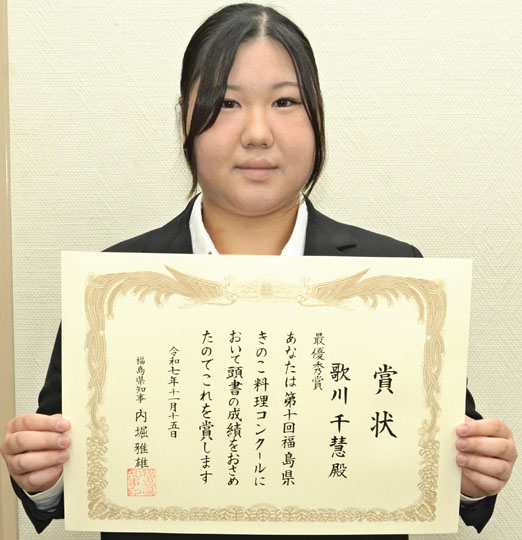 賞状
最優秀賞
歌川 千慧 殿
あなたは第十回福島県
きのこ料理コンクールに
おいて頭書の成績をおさめ
たのでこれを賞します
令和七年十一月十五日
福島県知事 内堀雅雄